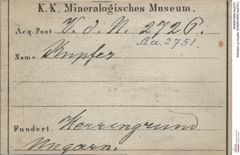 K. K. Mineralogisches Museum.
Acq. Post. V. d. N. 2726.
Aa. 2751
Name Kupfer
Fundort. Herrengrund
Ungarn.